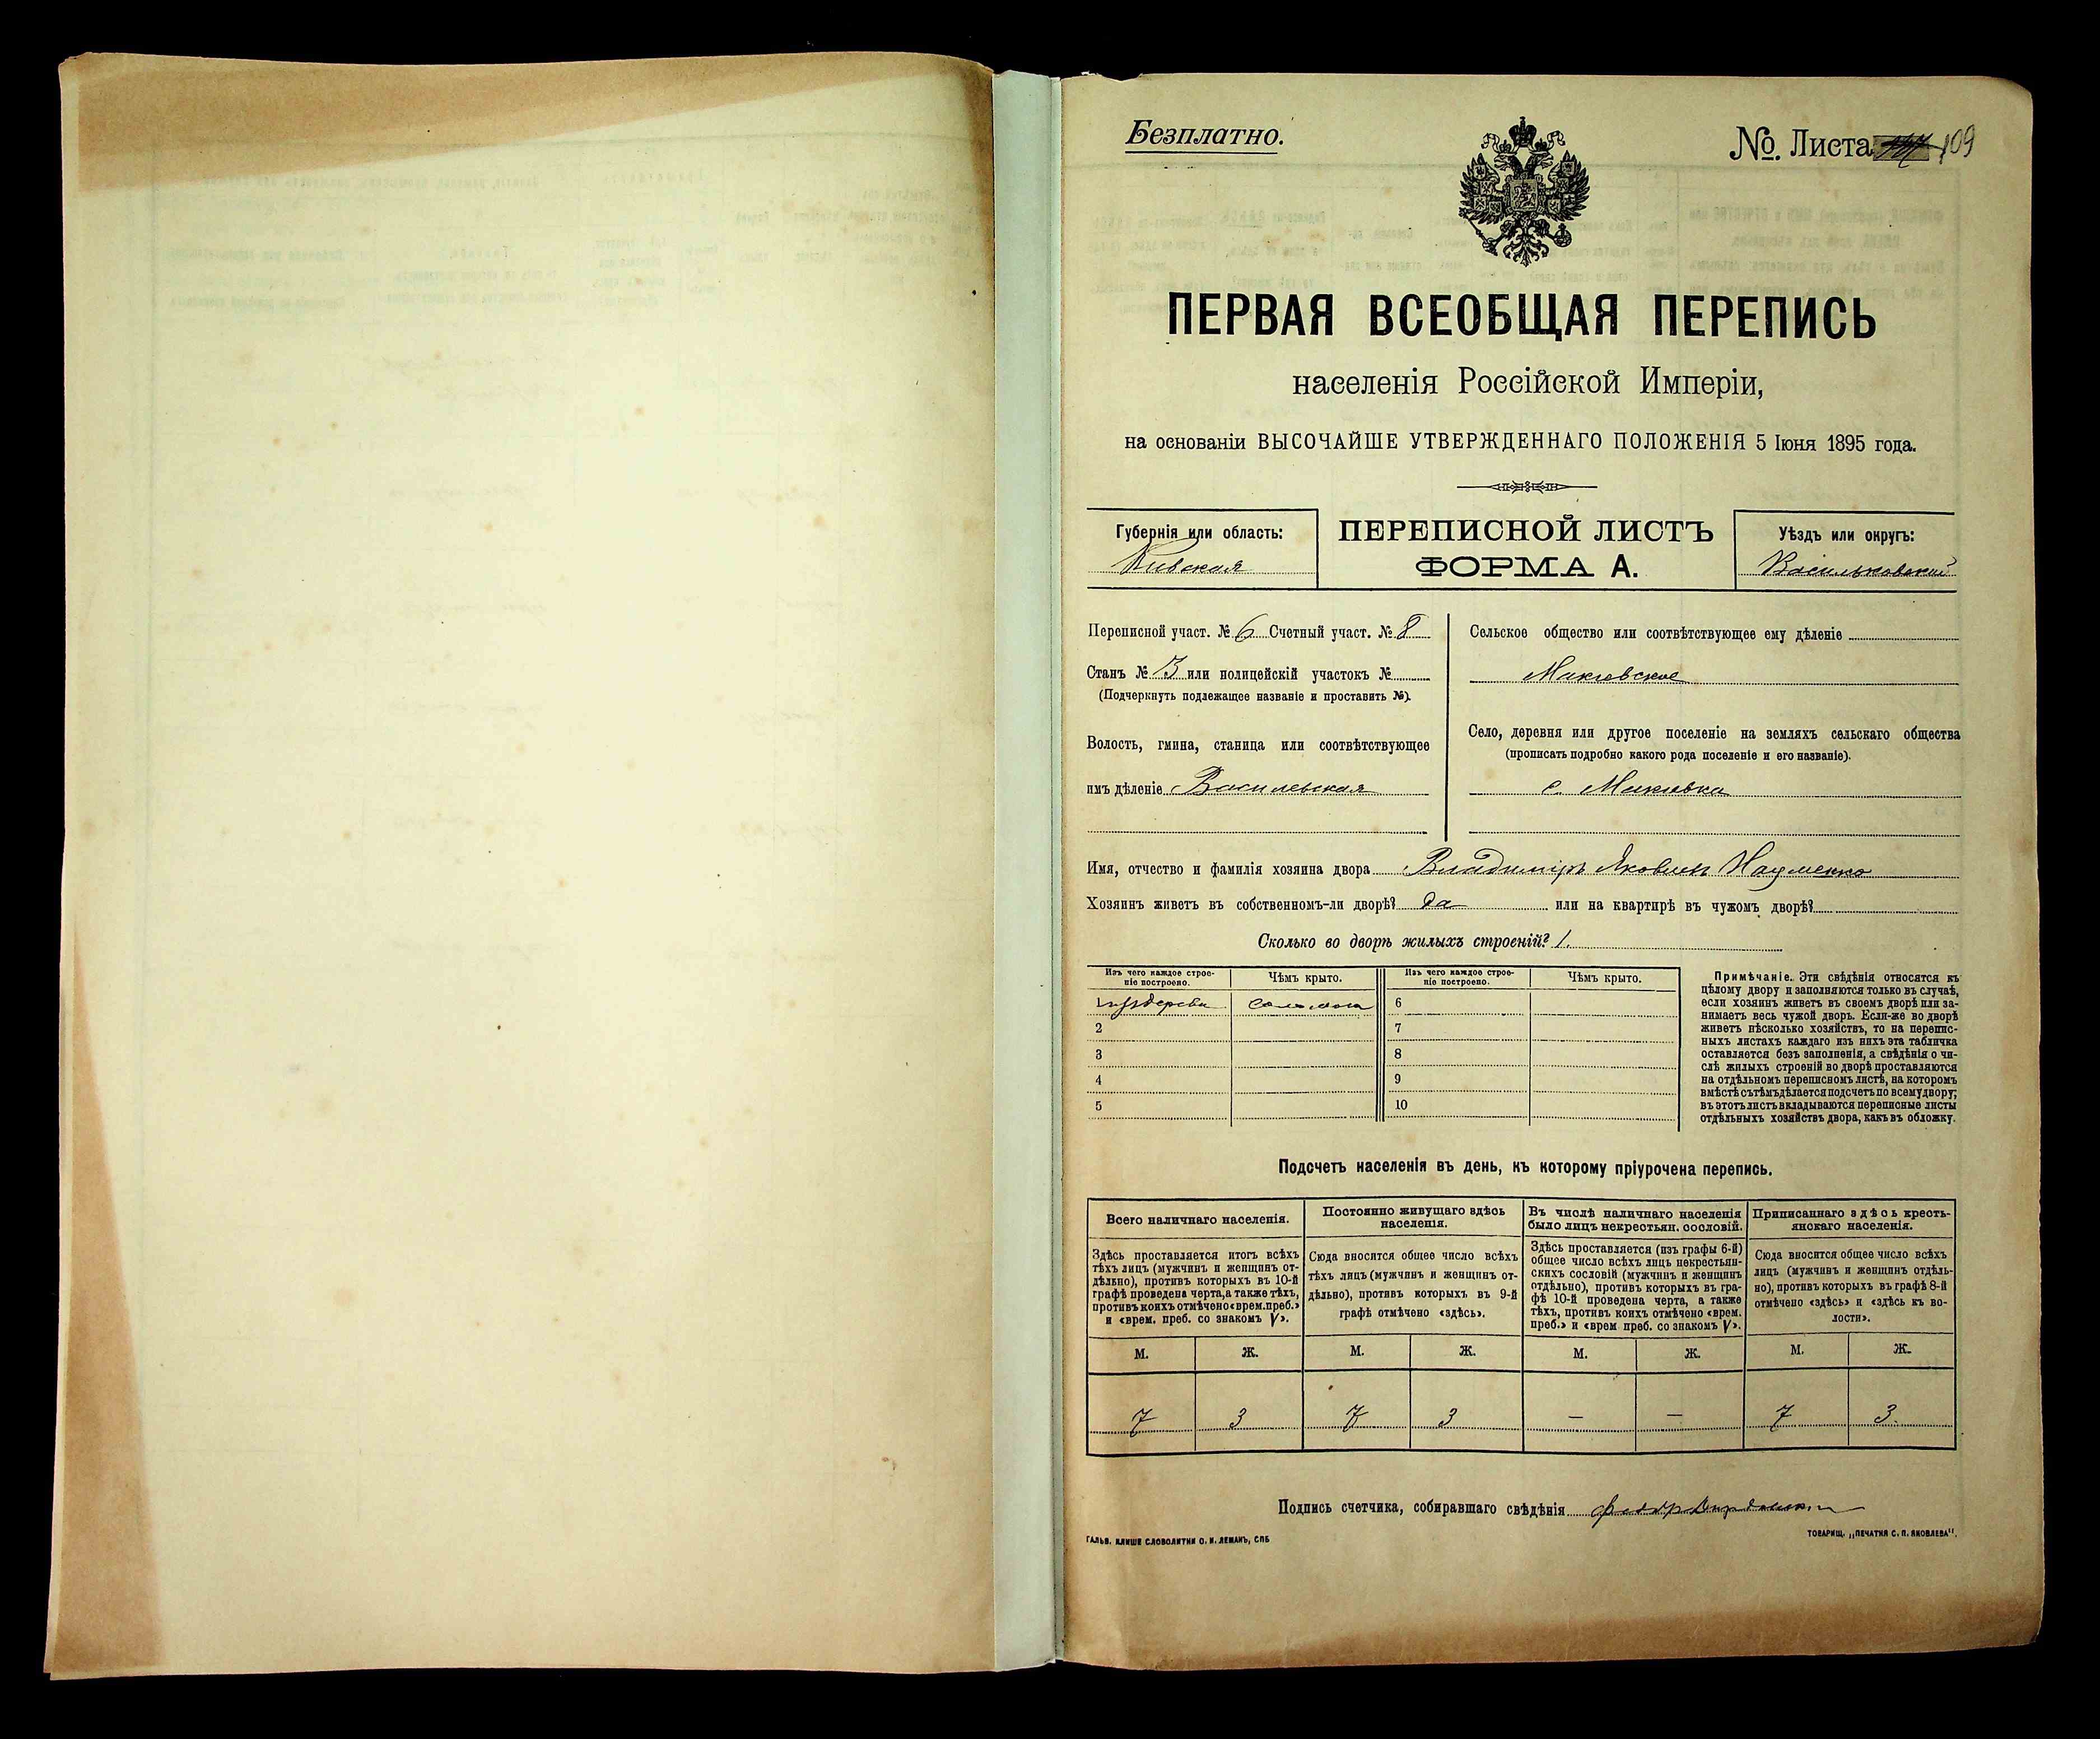 Безплатно.
№. Листа 109
ПЕРВАЯ ВСЕОБЩАЯ ПЕРЕПИСЬ
населенія Россійской Имперіи,
на основаніи ВЫСОЧАЙШЕ УТВЕРЖДЕННАГО ПОЛОЖЕНІЯ 5 Іюня 1895 года.
Губернія или область:
Кивская
ПЕРЕПИСНОЙ ЛИСТЪ
ФОРМА А.
Уѣздъ или округъ:
Васильковский
Переписной участ. № 6 Счетный участ. № 8
Станъ № 3 или полицейскій участокъ №
(Подчеркнуть подлежащее названіе и проставить №).
Волость, гмина, станица или соотвѣтствующее
имъ дѣленіе Василевская
Сельское общество или соотвѣтствующее ему дѣленіе
Село, деревня или другое поселеніе на земляхъ сельскаго общества
(прописать подробно какого рода поселеніе и его названіе).
с.
Имя, отчество и фамилія хозяина двора Владимиръ Яковлевъ Науменко
Хозяинъ живетъ въ собственномъ-ли дворѣ? да или на квартирѣ въ чужомъ дворѣ?
Сколько во дворѣ жилыхъ строеній? 1.
Изъ чего каждое строе-
ніе построено.
Чѣмъ крыто.
Изъ чего каждое строе-
ніе построено.
Чѣмъ крыто.
1 изъ дерева соломою 6
2 7
3 8
4 9
5 10
Примѣчаніе. Эти свѣдѣнія относятся къ
цѣлому двору и заполняются только въ случаѣ,
если хозяинъ живетъ въ своемъ дворѣ или за-
нимаетъ весь чужой дворъ. Если-же во дворѣ
живетъ нѣсколько хозяйствъ, то на перепис-
ныхъ листахъ каждаго изъ нихъ эта табличка
оставляется безъ заполненія, а свѣдѣнія о чи-
слѣ жилыхъ строеній во дворѣ проставляются
на отдѣльномъ переписномъ листѣ, на которомъ
вмѣстѣ съ тѣмъ дѣлается подсчетъ по всему двору;
въ этотъ листъ вкладываются переписные листы
отдѣльныхъ хозяйствъ двора, какъ въ обложку.
Подсчетъ населенія въ день, къ которому пріурочена перепись.
Всего наличнаго населенія.
Здѣсь проставляется итогъ всѣхъ
тѣхъ лицъ (мужчинъ и женщинъ от-
дѣльно), противъ которыхъ въ 10-й
графѣ проведена черта, а также тѣхъ,
противъ коихъ отмѣчено «врем. преб.»
и «врем. преб. со знакомъ V».
Постоянно живущаго здѣсь
населенія.
Сюда вносится общее число всѣхъ
тѣхъ лицъ (мужчинъ и женщинъ от-
дѣльно), противъ которыхъ въ 9-й
графѣ отмѣчено «здѣсь».
Въ числѣ наличнаго населенія
было лицъ некрестьян. сословій.
Здѣсь проставляется (изъ графы 6-й)
общее число всѣхъ лицъ некрестьян-
скихъ сословій (мужчинъ и женщинъ
отдѣльно), противъ которыхъ въ гра-
фѣ 10-й проведена черта, а также
тѣхъ, противъ коихъ отмѣчено «врем.
преб.» и «врем преб. со знакомъ V».
Приписаннаго здѣсь кресть-
янскаго населенія.
Сюда вносится общее число всѣхъ
лицъ (мужчинъ и женщинъ отдѣль-
но), противъ которыхъ въ графѣ 8-й
отмѣчено «здѣсь» и «здѣсь къ во-
лости».
М. Ж. М. Ж. М. Ж. М. Ж.
7 3 7 3 — — 7 3.
Подпись счетчика, собиравшаго свѣдѣнія
ГАЛЬВ. КЛИШЕ СЛОВОЛИТНИ О. И. ЛЕМАНЪ, СПБ
ТОВАРИЩ. „ПЕЧАТНЯ С. П. ЯКОВЛЕВА".